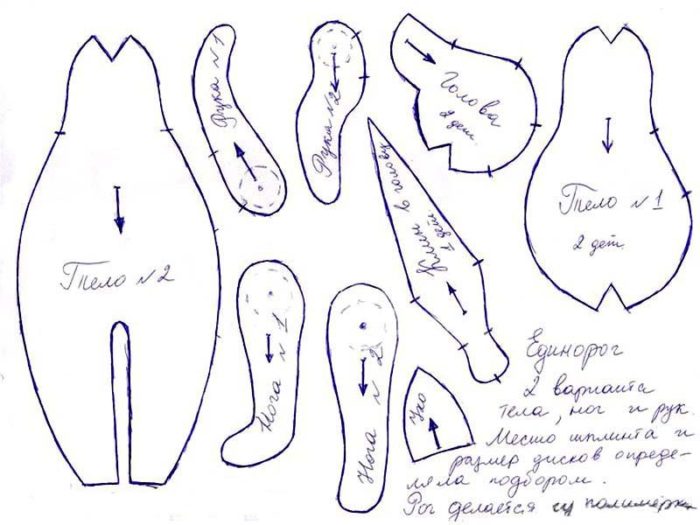 Рука №1
Рука №2
Голова
2 дет.
Клин в голову
1 дет.
Тело №1
2 дет.
Тело №2
Нога №1
Нога №2
Ухо
Единорог
2 варианта
тела, ног и рук.
Место шплинта и
размер дисков опреде-
ляла подбором.
Рог делается из полимерки